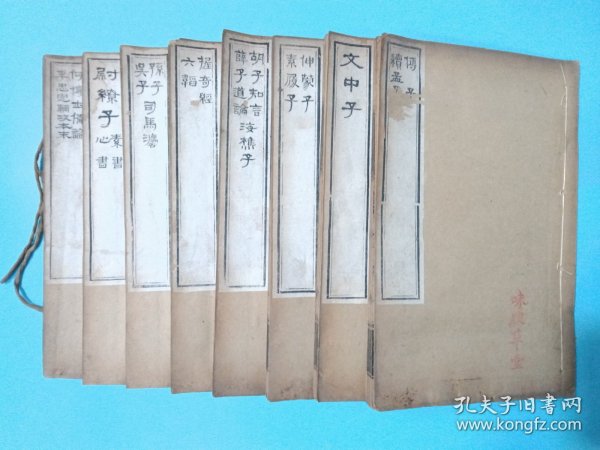 傅子
續孟子
文中子
伸蒙子
素履子
胡子知言
薛子道論 海樵子
握奇經
六韜
孫子 司馬灋
吳子
尉繚子 素書
心書
何博士備論
孔夫子旧书网
www.kongfz.com